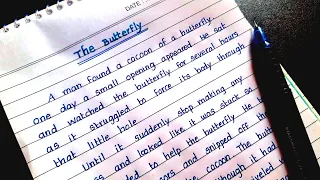 DATE:
The Butterfly
A man found a cocoon of a butterfly
one day a small opening appeared. He sat
and watched the butterfly for several hours
as it struggled to force its body through
that little hole
Until it suddenly stop making any
and looked like it was stuck so
ded to help the butterfly. He
ors and snipped off the
the cocoon. The butt
although it had